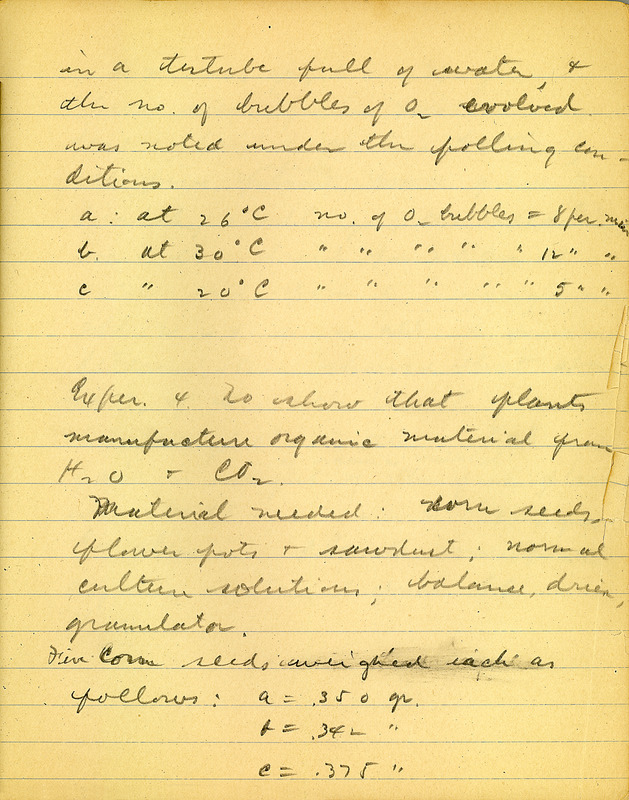 in a testube full of water, &
the no. of bubbles of O2 evolved
was noted under the folling con-
ditions.
a: at 26°C no. of O2 bubbles = 8 per. min
b. at 30°C " " " " " 12 " "
c " 20°C " " " " " 5 " "
Exper. 4 To show that plants
manufacture organic material from
H2O + CO2.
Material needed: corn seeds,
flower pots + sawdust; normal
culture solutions; balance, drier,
granulator.
Five corn seeds weighed each as
follows: a = .350 gr.
b = .342 "
c = .375 "